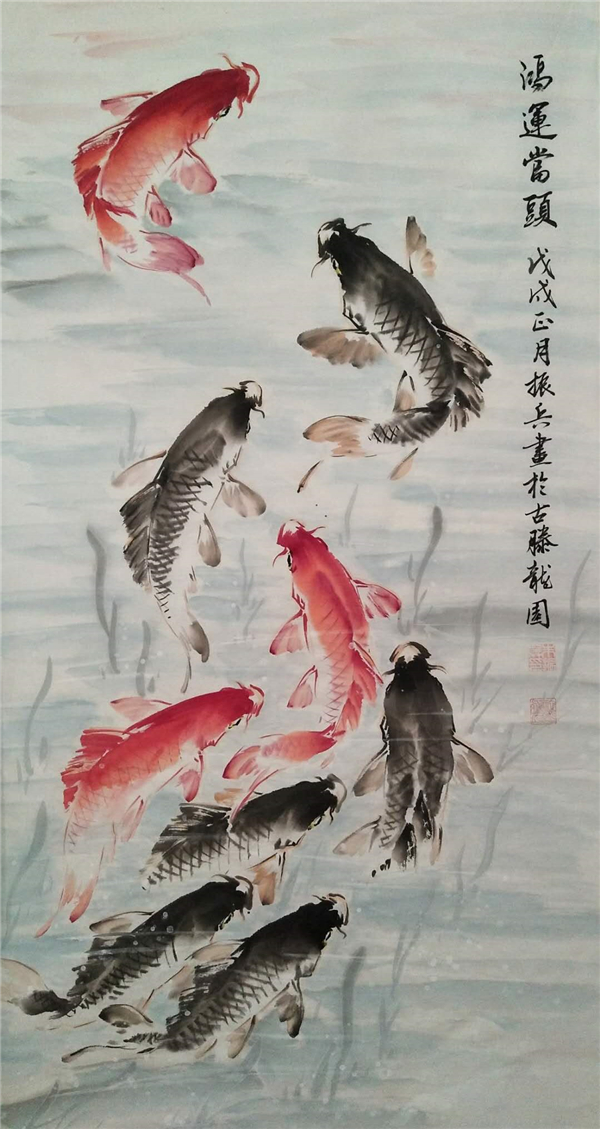 鴻運當頭
戊戌正月振兵畫於古滕龍園